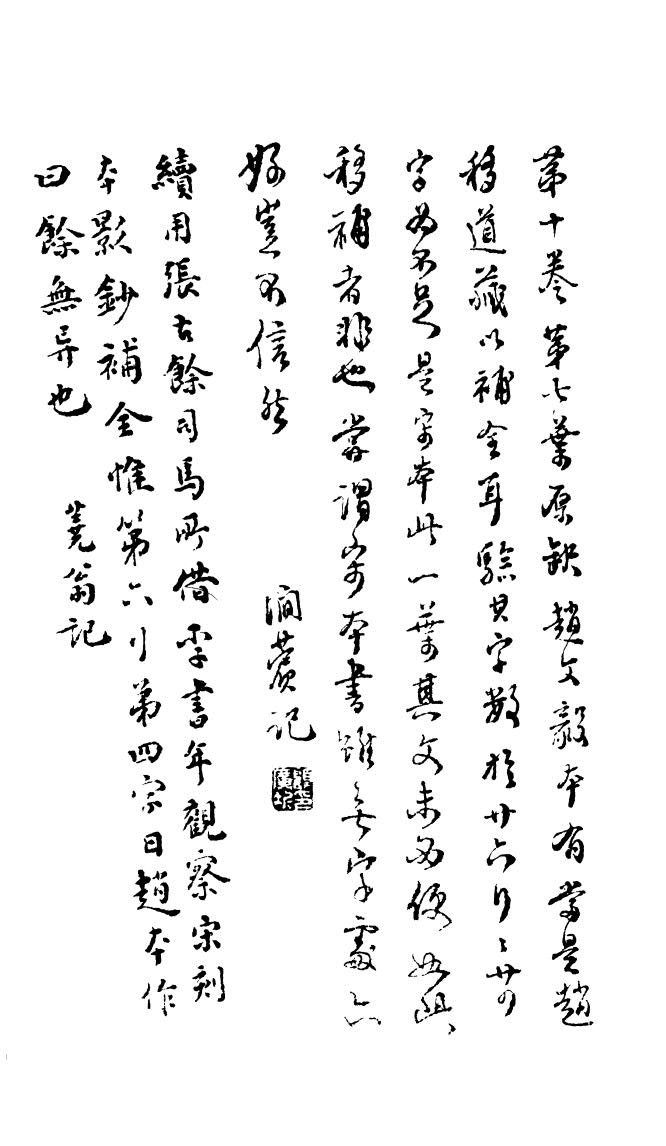 第十卷第七葉原缺趙文毅本有當是趙
移道藏以補全耳驗其字數於廿六行〻廿四
字為不足是宋本此一葉其文未必便如此
移補者非也嘗謂宋本書雖無字處亦
好豈不信然
澗薲記
顧印廣圻
續用張古餘司馬所借李書年觀察宋刻
本影鈔補全惟第六行第四字日趙本作
曰餘無异也
蕘翁記